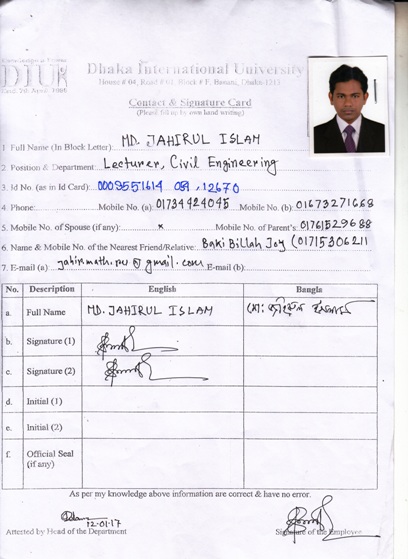 DIU
Dhaka International University
House # 04, Road # 01, Block # F, Banani, Dhaka-1213
Contact & Signature Card
(Please fill up by own hand writing)
1. Full Name (In Block Letter): MD. JAHIRUL ISLAM
2. Position & Department: Lecturer, Civil Engineering
3. Id No. (as in Id Card): 0009551614
4. Phone: Mobile No. (a): 01734924045 Mobile No. (b): 01673271668
5. Mobile No. of Spouse (if any): × Mobile No. of Parent's: 01761529688
6. Name & Mobile No. of the Nearest Friend/Relative: Baki Billah Joy (01715306211
7. E-mail (a) jahirmath.pu@gmail.com E-mail (b):
No. Description English Bangla
a. Full Name MD. JAHIRUL ISLAM মো: জহিরুল ইসলাম
b. Signature (1)
c. Signature (2)
d. Initial (1)
e. Initial (2)
f. Official Seal
(if any)
As per my knowledge above information are correct & have no error.
12-01-17
Attested by Head of the Department Signature of the Employee